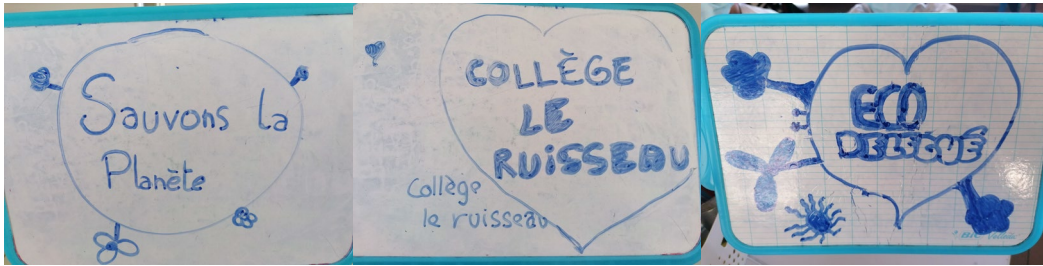 Sauvons la
Planète
COLLÈGE
LE
RUiSSEAU
Collège
le ruisseau
ECO
DELEGUÉ